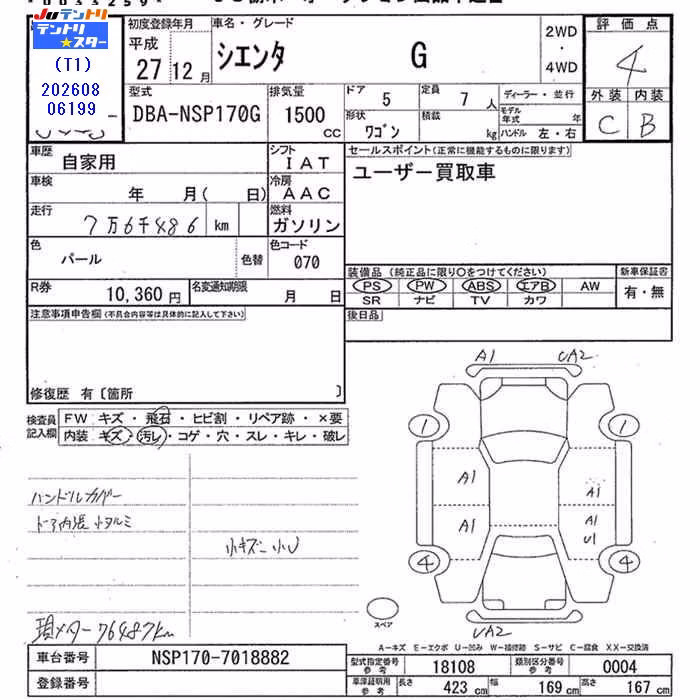 Juテントリ
テントリ★スター
(T1)
202608
06199
初度登録年月 車名・グレード 2WD・4WD 評価点
平成 27 12月 シエンタ G 4
型式 排気量 ドア 5 定員 7 人 ディーラー・並行 外装 内装
DBA-NSP170G 1500 cc 形状 ワゴン 積載 kg モデル年式 年 C B
ハンドル 左・右
車歴 自家用 シフト IAT セールスポイント(正常に機能するものに限ります)
ユーザー買取車
車検 年 月( 日) 冷房 AAC
走行 7万6千486 km 燃料 ガソリン
色 パール 色替 色コード 070
装備品 (純正品に限り○をつけてください) 新車保証書
PS PW ABS エアB AW 有・無
SR ナビ TV カワ
R券 10,360 円 名変通知期限 月 日
注意事項申告欄(不具合内容等は具体的に記入して下さい) 後日品
修復歴 有〔箇所 〕
検査員記入欄 FW キズ・飛石・ヒビ割・リペア跡・×要
内装 キズ・汚レ・コゲ・穴・スレ・キレ・破レ
A1 UA2
1 1
A1 A1
A1 A1
U1
4 4
UA2
スペア
ハンドルカバー
ドア内張小ヌルミ
小キズ 小U
現メーター76487km
A−キズ E−エクボ U−凹み W−補修跡 S−サビ C−腐食 XX−交換済
車台番号 NSP170-7018882 型式指定番号 参考 18108 類別区分番号 参考 0004
登録番号 車庫証明用 参考 長さ 423 cm 幅 169 cm 高さ 167 cm